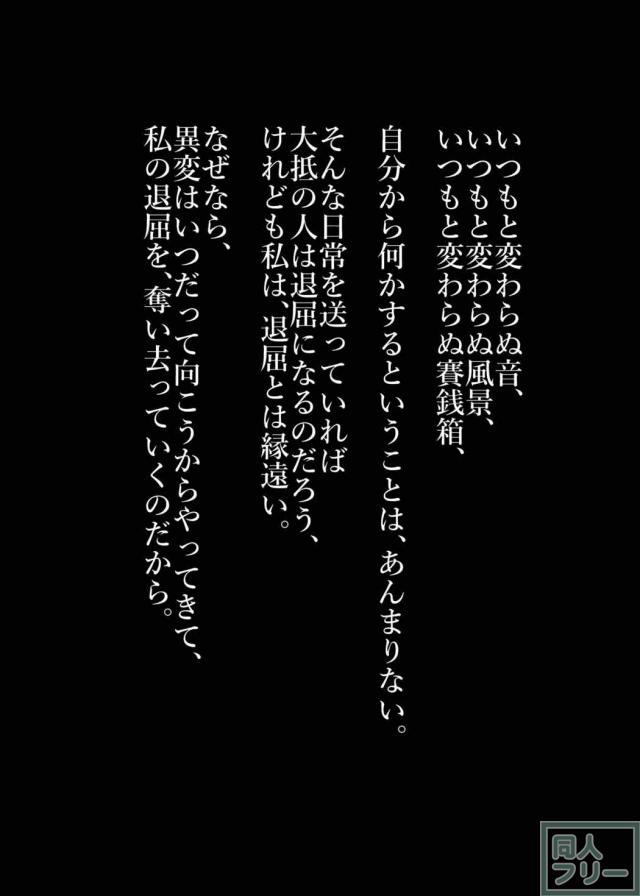 いつもと変わらぬ音、
いつもと変わらぬ風景、
いつもと変わらぬ賽銭箱、
自分から何かするということは、あんまりない。
そんな日常を送っていれば
大抵の人は退屈になるのだろう、
けれども私は、退屈とは縁遠い。
なぜなら、
異変はいつだって向こうからやってきて、
私の退屈を、奪い去っていくのだから。
同人
フリー